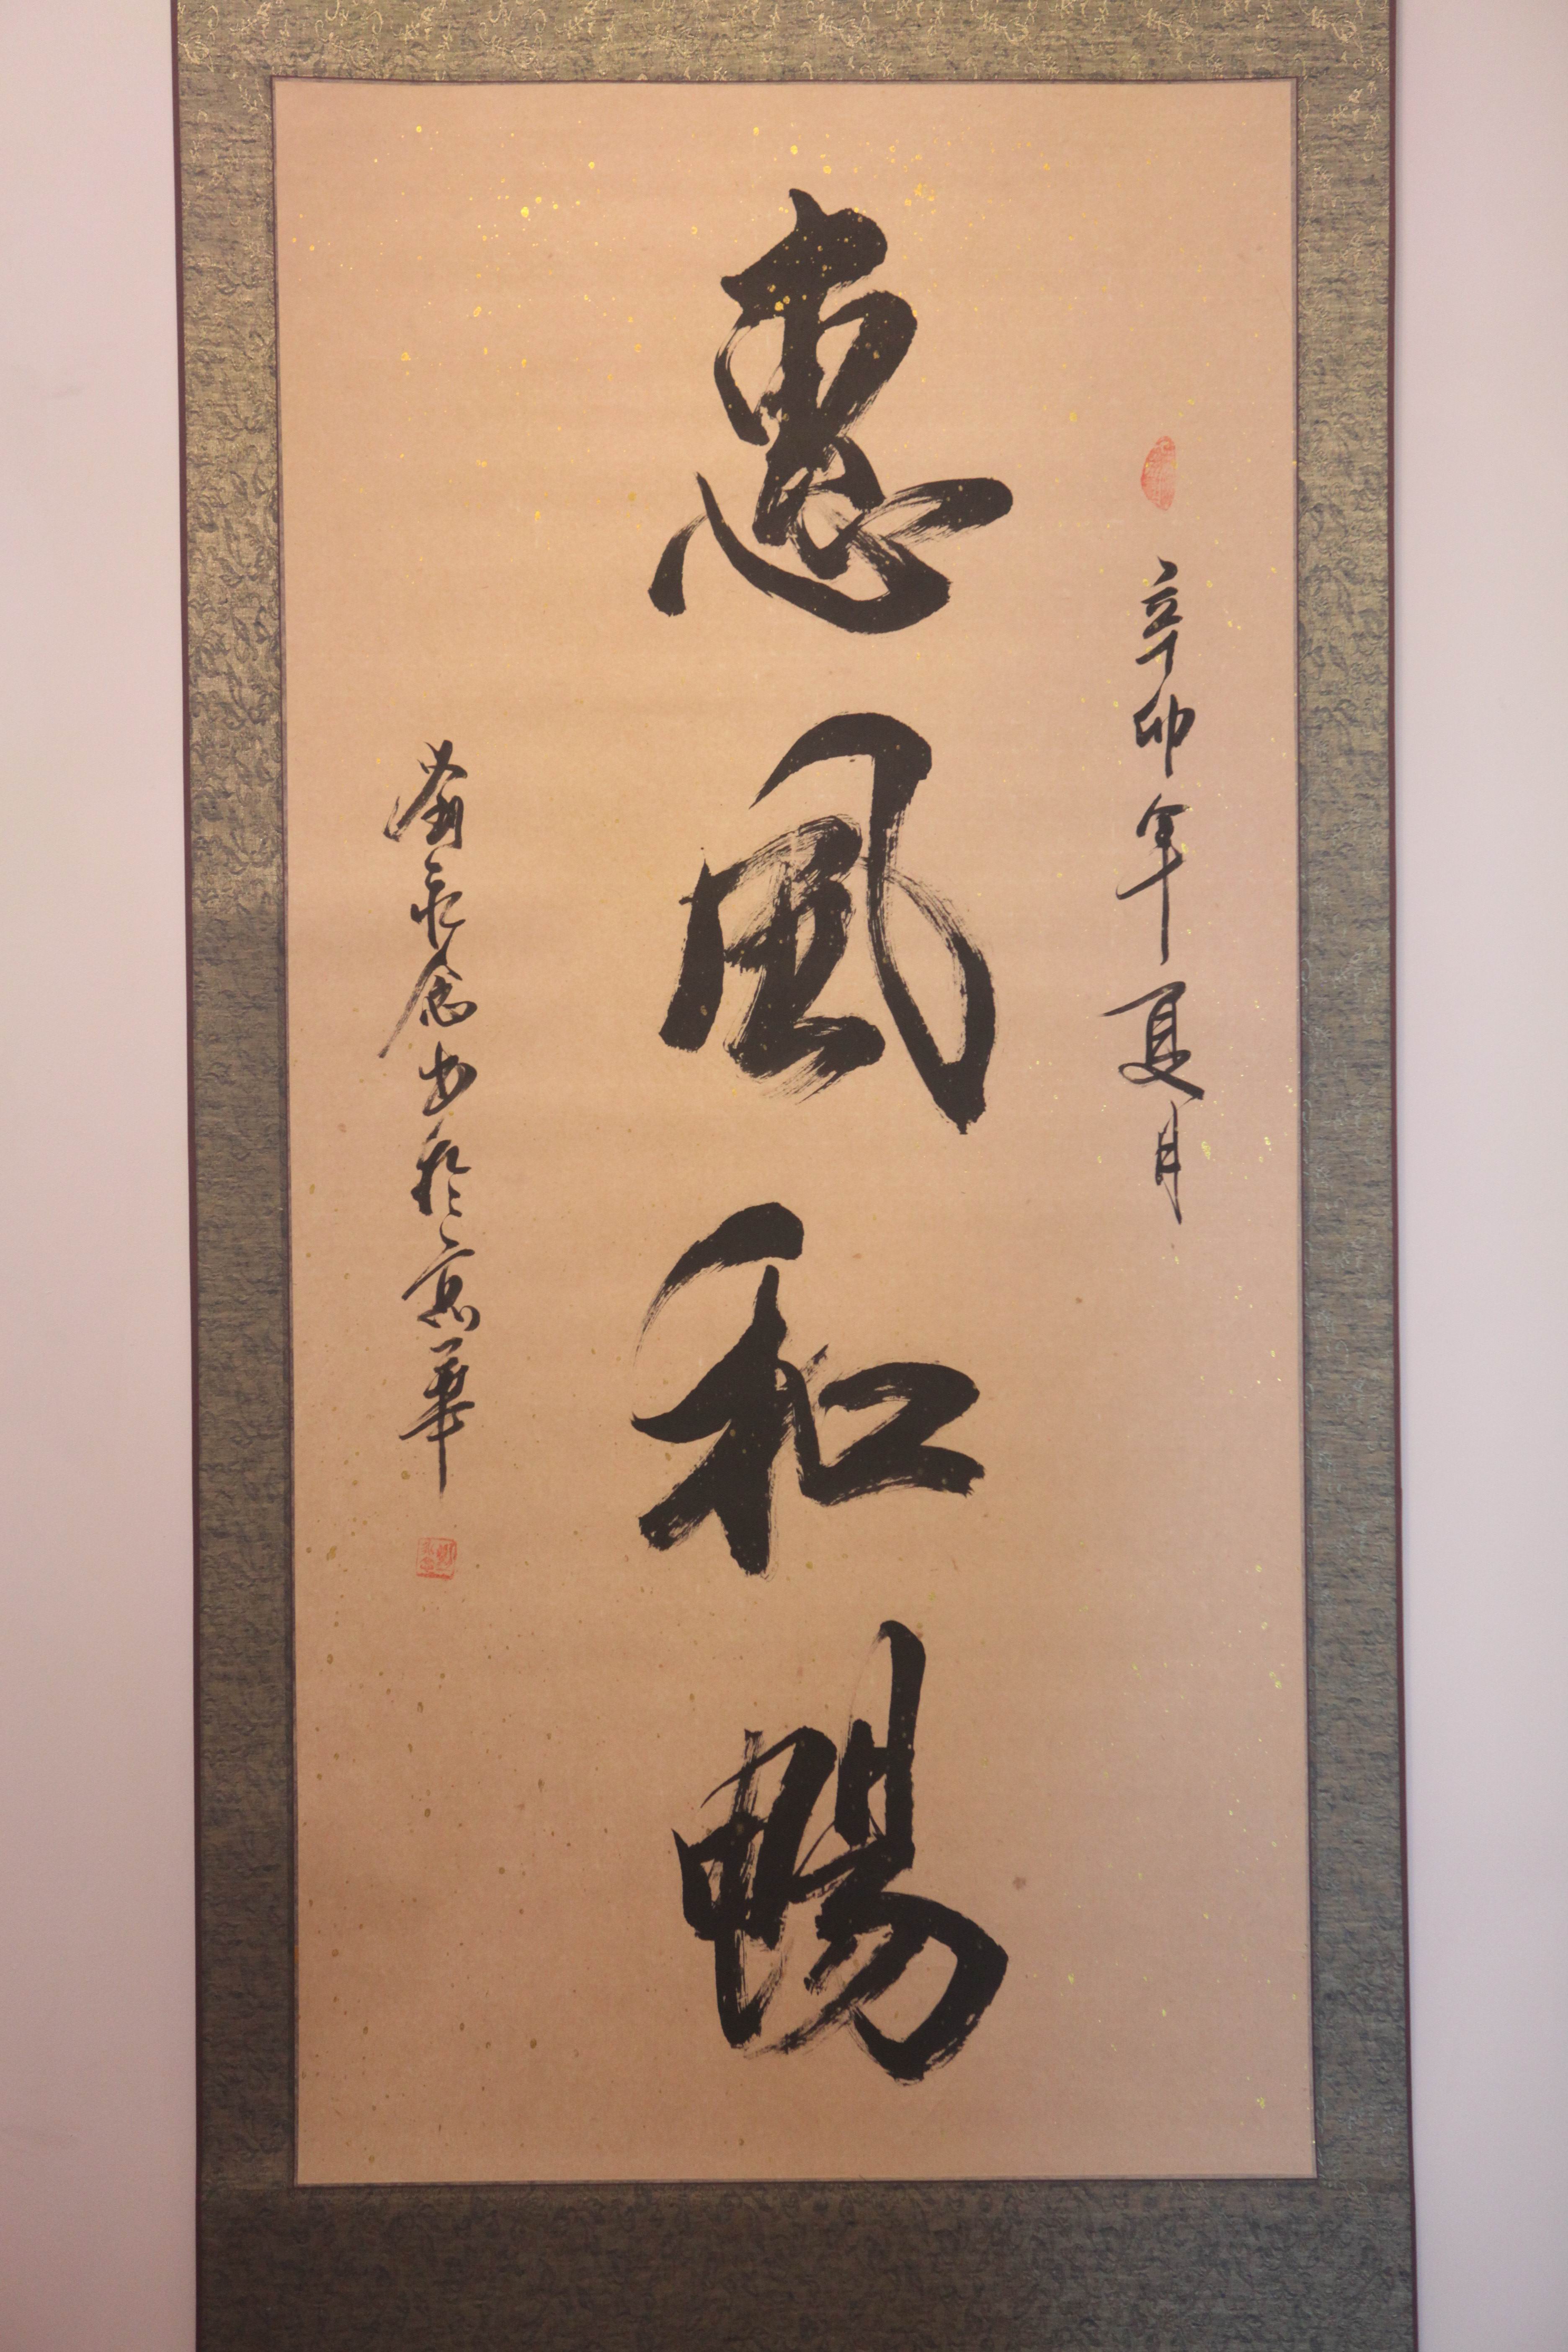 辛卯年夏月
惠風和暢
劉永念书於京華